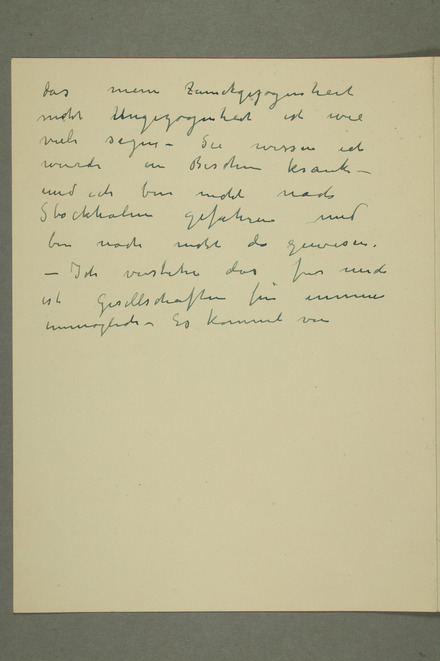 das meine Zurückgezogenheit
nicht Ungezogenheit ist wie
viele sagen – Sie wissen ich
wurde in Berlin krank –
und ich bin nicht nach
Stockholm gefahren und
bin noch nicht da gewesen.
– Ich verstehe das für mich
ist Gesellschaften für immer
unmöglich – Es kommt von